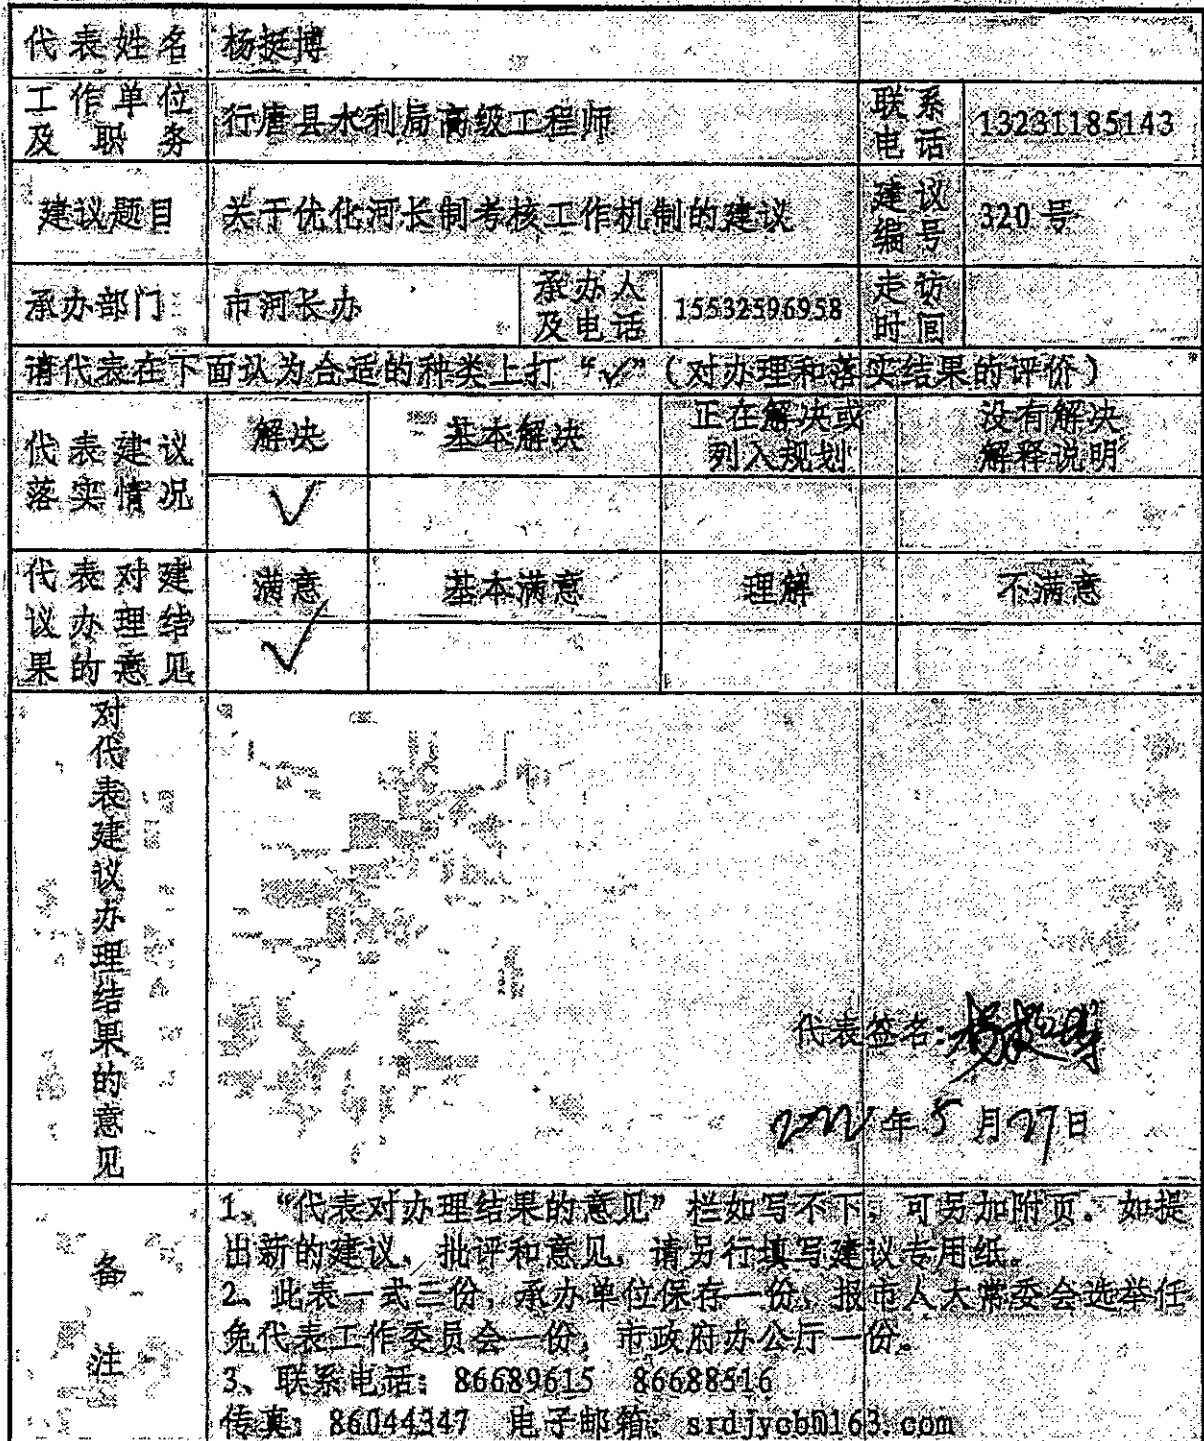 代表姓名 杨挺博
工作单位及职务 行唐县水利局高级工程师 联系电话 13231185143
建议题目 关于优化河长制考核工作机制的建议 建议编号 320 号
承办部门 市河长办 承办人及电话 15532596958 走访时间
请代表在下面认为合适的种类上打“✓”（对办理和落实结果的评价）
代表建议落实情况 解决 基本解决 正在解决或列入规划 没有解决解释说明
✓
代表对建议办理结果的意见 满意 基本满意 理解 不满意
✓
对代表建议办理结果的意见
代表签名：杨挺博
2022年5月27日
备注
1、“代表对办理结果的意见”栏如写不下，可另加附页。如提
出新的建议、批评和意见，请另行填写建议专用纸。
2、此表一式三份，承办单位保存一份，报市人大常委会选举任
免代表工作委员会一份，市政府办公厅一份。
3、联系电话：86689615 86688516
传真：86044347 电子邮箱：srdjycb@163.com